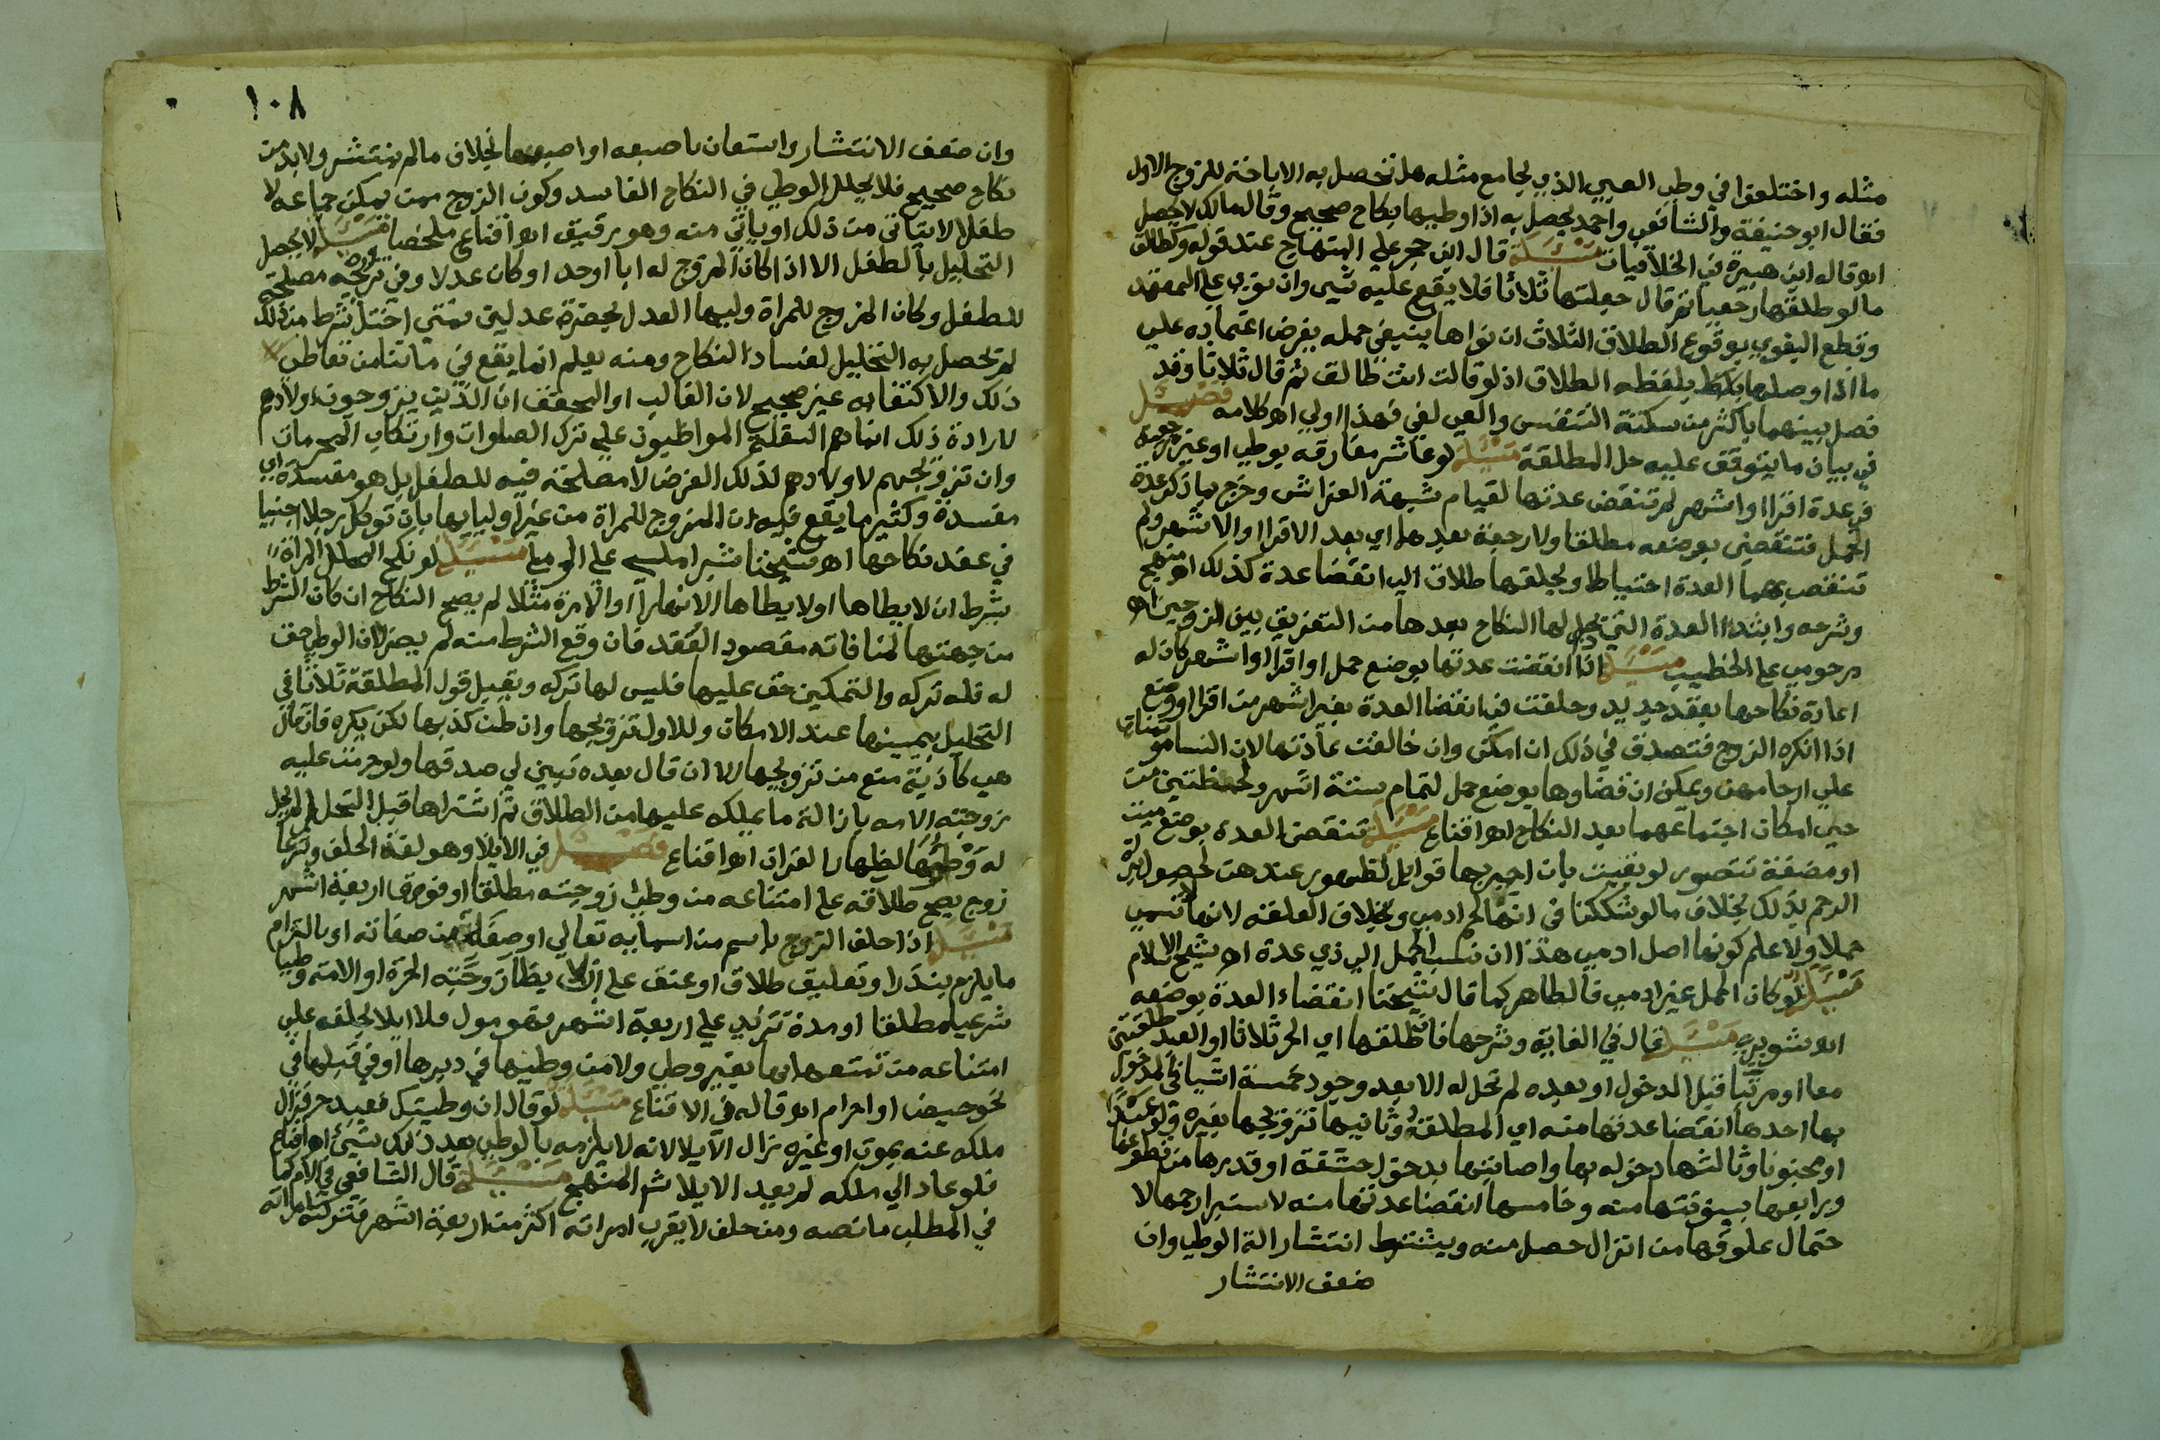 مثله واختلفوا في وطى الصبي الذي يجامع مثله هل تحصل به الاباحة للزوج الاول
فقال ابو حنيفة والشافعي واحمد يحصل به اذا وطيها بنكاح صحيح وقال مالك لا يحصل
اه قاله ابن هبيرة في الخلافيات مسئلة قال ابن حجر على المنهاج عند قوله وطالق
ما لو طلقها رجعيا ثم قال جعلتها ثلاثا فلا يقع عليه شي وان نوى على المعتمد
وقطع البغوي بوقوع الطلاق الثلاث ان نواها ينبغي حمله بفرض اعتماده على
ما اذا وصلها بلفظه الطلاق اذ لو قالت انت طالق ثم قال ثلاثا وقد
فصل بينهما باكثر من سكتة التنفس والعي لغى فهذا اولى اه كلامه فصل
في بيان ما يتوقف عليه حل المطلقة مسئلة لو عاشر مفارقه بوطى او غيره رجعية
في عدة اقرا او اشهر لم تنقض عدتها لقيام شبهة الفراش وخرج بما ذكر عدة
الحمل فتنقضي بوضعه مطلقا ولا رجعة بعدها اي بعد الاقرا والاشهر ولم
تنقض بهما العدة احتياطا ويلحقها طلاق الى انقضا عدة كذلك اه منهج
وشرحه وابتدا العدة التي يحل لها النكاح بعدها من التفريق بين الزوجين اه
مرحومي على الخطيب مسئلة اذا انقضت عدتها بوضع حمل او اقرا او اشهر كان له
اعادة نكاحها بعقد جديد وحلفت في انقضا العدة بغير اشهر من اقرا او وضع
اذا انكره الزوج فتصدق في ذلك ان امكن وان خالفت عادتها لان النسا مؤتمنات
على ارحامهن ويمكن انقضاوها بوضع حمل لتمام ستة اشهر ولحظتين من
حين امكان اجتماعهما بعد النكاح اه اقناع مسئلة تنقضي العدة بوضع ميت
او مضغة تتصور لو بقيت بان اخبر بها قوابل لظهور عندهن لحصول براة
الرحم بذلك بخلاف ما لو شككنا في انها لحم ادمي وبخلاف العلقة لانها لا تسمى
حملا ولا علم كونها اصل ادمي هذا ان نسب الحمل الى ذي عدة اه شيخ الاسلام
مسئلة لو كان الحمل غير ادمي فالظاهر كما قال شيخنا انقضاء العدة بوضعه
اه شوبري مسئلة قال في الغاية وشرحها فان طلقها اي الحر ثلاثا او العبد طلقتين
معا او مرتبا قبل الدخول او بعده لم تحل له الا بعد وجود خمسة اشيا في المدخول
بها احدها انقضا عدتها منه اي المطلقة وثانيها تزويجها بغيره ولو عبدا
او مجنونا وثالثها دخوله بها واصابتها بدخول حشفة او قدرها من مقطوعها
ورابعها بينونتها منه وخامسها انقضا عدتها منه لاستبرا رحمها لا
حتمال علوقها من انزال حصل منه ويشترط انتشار الة الوطى وان
ضعف الانتشار
١٠٨
وان ضعف الانتشار واستعان باصبعه او اصبعها بخلاف ما لم ينتشر ولا بد من
نكاح صحيح فلا يحلل الوطي في النكاح الفاسد وكون الزوج ممن يمكن جماعه لا
طفلا لا يتاتى من ذلك او ياتي منه وهو رقيق اه اقناع ملخصا مسئلة لا يحصل
التحليل بالطفل الا اذا كان المزوج له ابا او جد او كان عدلا وفي تزويجه مصلحة
للطفل وكان المزوج للمراة وليها العدل بحضرة عدلين فمتى اختل شرط من ذلك
لم يحصل به التحليل لفساد النكاح ومنه يعلم ان ما يقع في ماننا من تعاطى
ذلك والاكتفا به غير صحيح لان الغالب او المحقق ان الذين يزوجون اولادهم
لارادة ذلك انما هم السفلة المواظبون على ترك الصلوات وارتكاب المحرمات
وان تزويجهم لاولادهم لذلك الغرض لا مصلحة فيه للطفل بل هو مفسدة اي
مفسدة وكثير ما يقع فيه ان المزوج للمراة من غير اوليايها بان توكل رجلا اجنبيا
في عقد نكاحها اه شيخنا شبراملسي على الرملي مسئلة لو نكح المحلل المراة
بشرط ان لا يطاها او لا يطاها الا نهارا او الا مرة مثلا لم يصح النكاح ان كان الشرط
من جهتها لمنافاته مقصود العقد فان وقع الشرط منه لم يضر لان الوطى حق
له فله تركه والتمكين حق عليها فليس لها تركه ويقبل قول المطلقة ثلاثا في
التحليل بيمينها عند الامكان وللاول تزويجها وان ظن كذبها لكن يكره فان قال
هي كاذبة منع من تزويجها الا ان قال بعده تبين لي صدقها ولو حرمت عليه
زوجته الامة بازالة ما يملكه عليها من الطلاق ثم اشتراها قبل التحلل لم يحل
له وطئها لظاهر القران اه اقناع فصل في الايلا وهو لغة الحلف وشرعا
زوج يصح طلاقه على امتناعه من وطى زوجته مطلقا او فوق اربعة اشهر
مسئلة اذا حلف الزوج باسم من اسمايه تعالى او صفة من صفاته او بالتزام
ما يلزم بنذر او تعليق طلاق او عتق على انه لا يطا زوجته الحرة او الامة وطيا
شرعيا مطلقا او مدة تزيد على اربعة اشهر فهو مول فلا ايلا بحلفه على
امتناعه من تمتعه بها بغير وطى ولا من وطيها في دبرها او في قبلها في
نحو حيض او احرام اه قاله في الاقناع مسئلة لو قال ان وطيتك فعبدي حر فزال
ملكه عنه بموت او غيره زال الايلا لانه لا يلزمه بالوطى بعد ذلك شيئ اه اقناع
فلو عاد الى ملكه لم يعد الايلا شم المنهج مسئلة قال الشافعي في الام كما
في المطلب ما نصه ومن حلف لا يقرب امراته اكثر من اربعة اشهر فتركته امراته